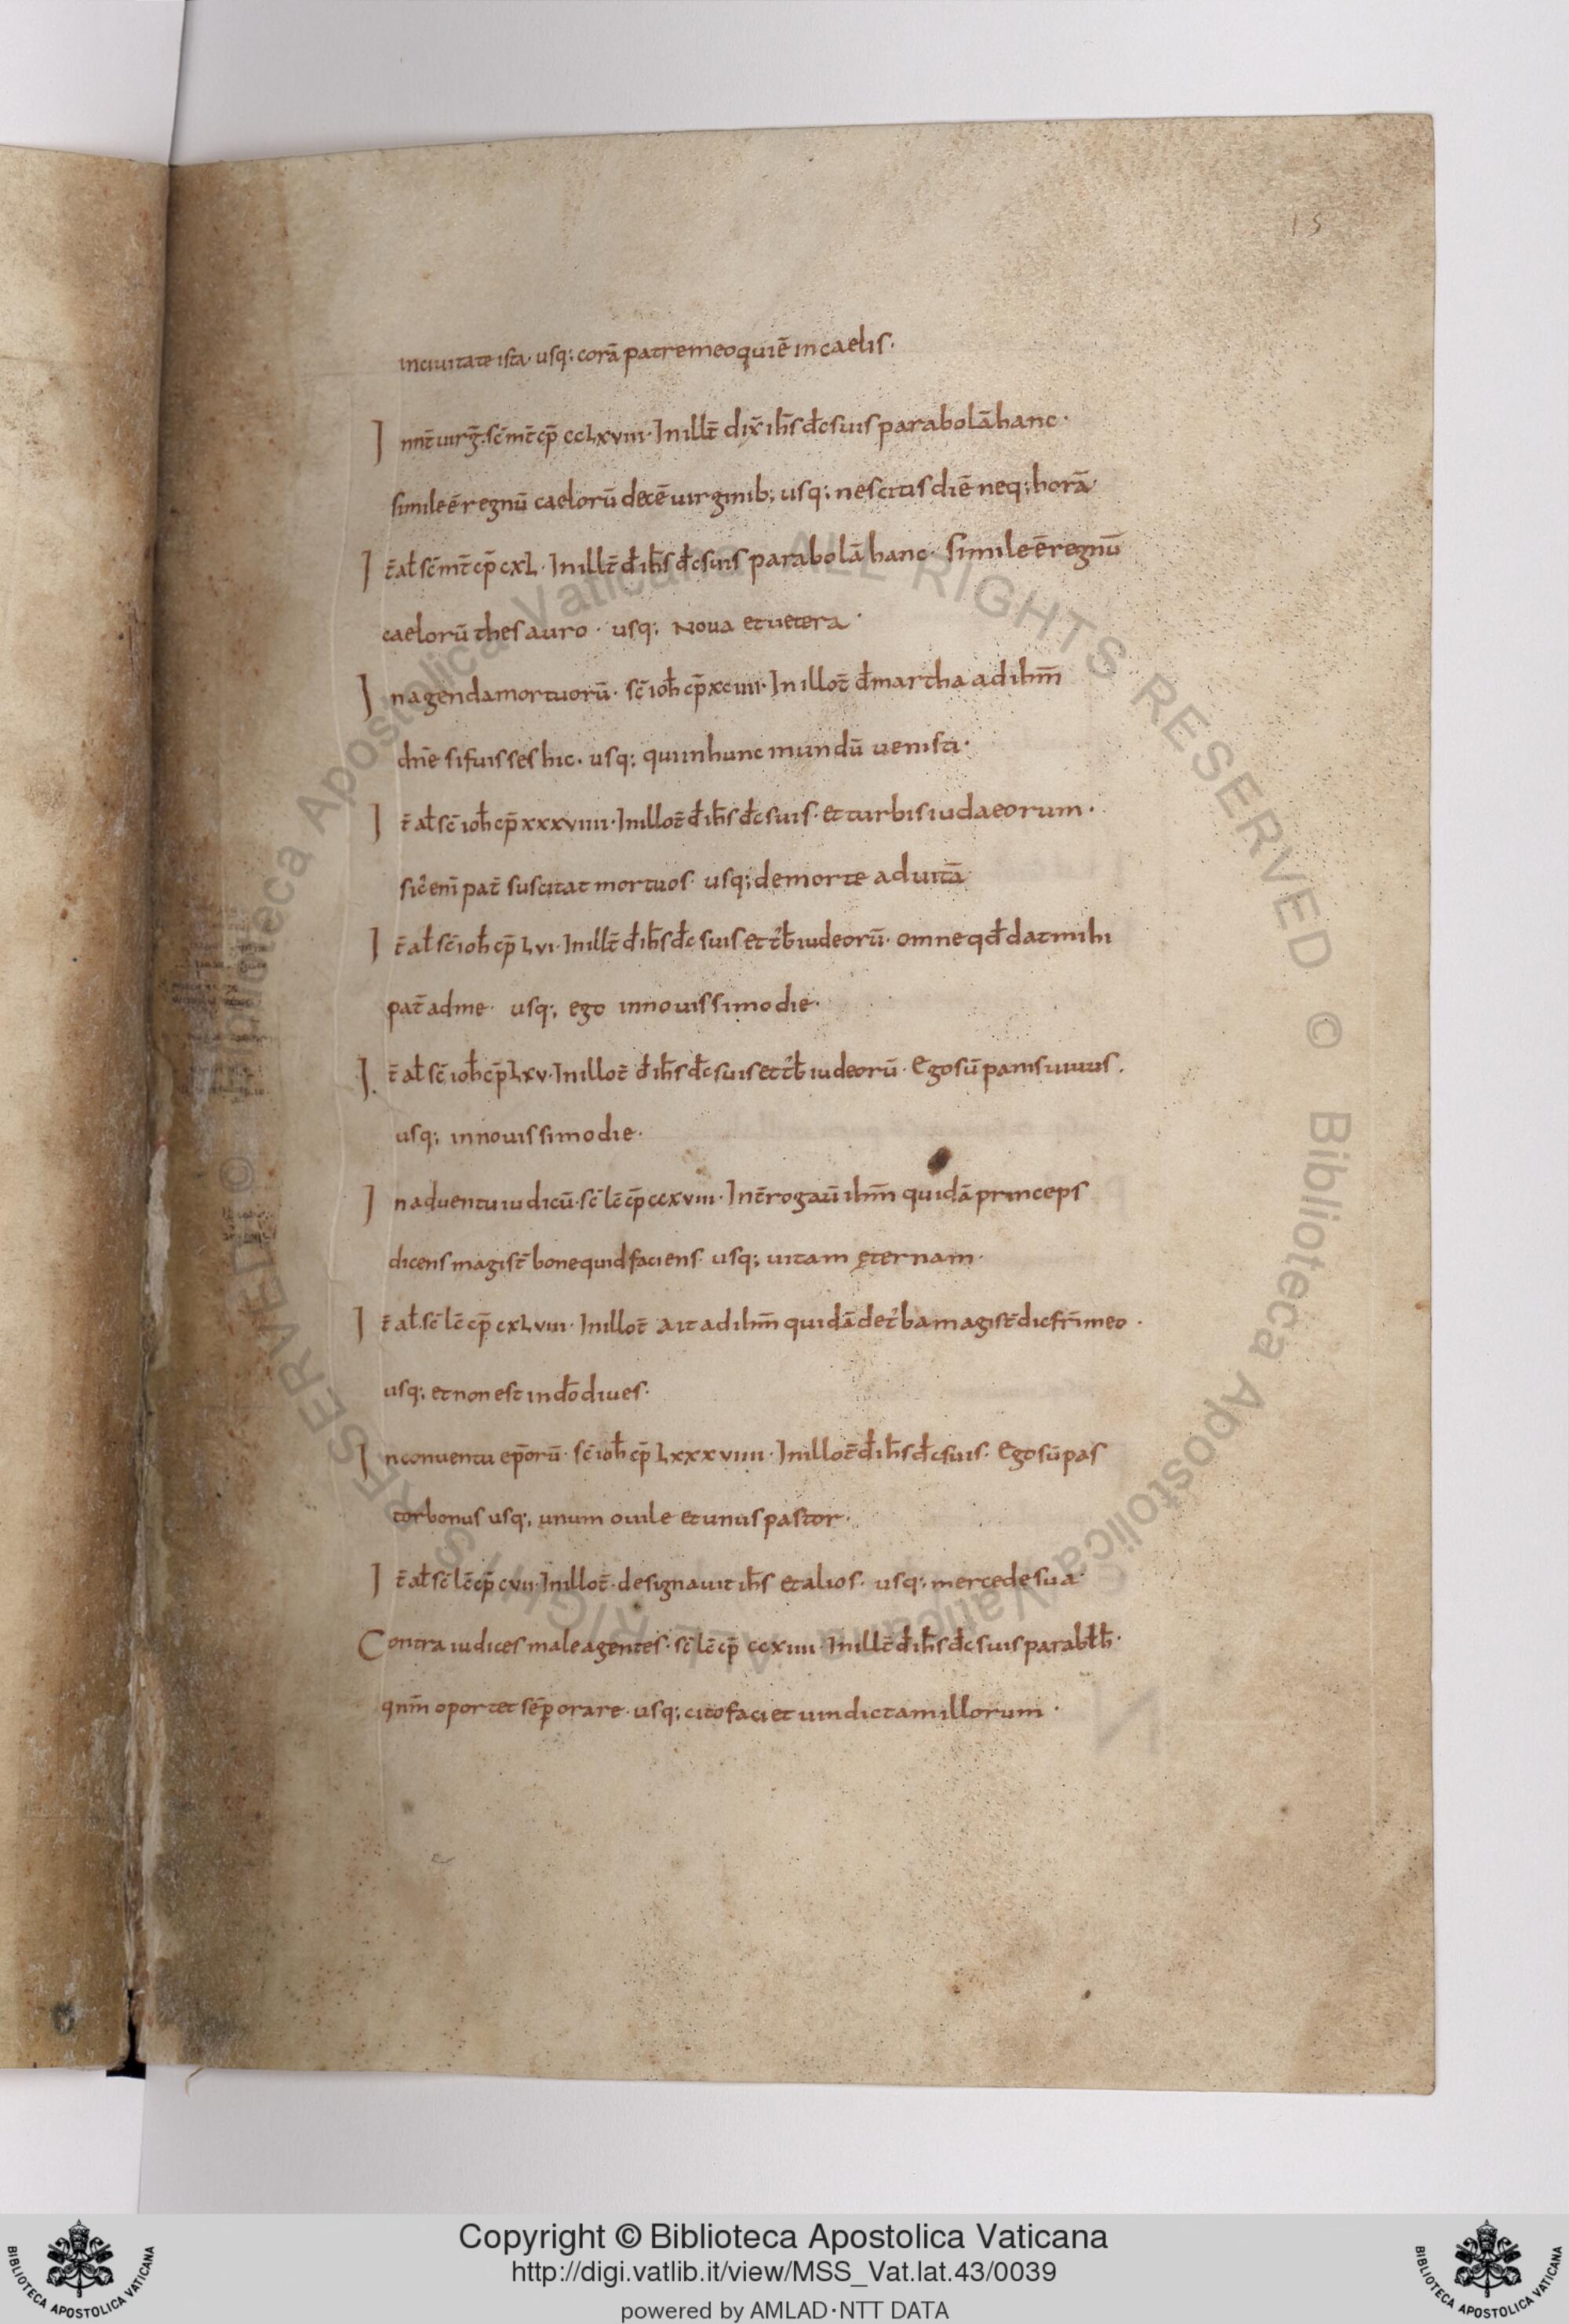 15
inciuitate ista · usq; corā patremeoquiē incaelis ·
Innt̄ uirg̅ · sc̄ mt̄ cp̄ cclxviii · Inillt̄ dix̄ ih̄s dc̄suis parabolā hanc ·
simileē regnū caelorū decē uirginib; usq; nescitis diē neq; horā ·
It̄ al̄ sc̄ mt̄ cp̄ cxl · Inillt̄ đ ih̄s dc̄suis parabolā hanc · simileē regnū
caelorū thesauro · usq; Noua etuetera ·
Inagendamortuorū · sc̄ ioh̄ cp̄ xciiii · Inillot̄ đ martha adihm̄
dn̄e sifuisses hic · usq; quiinhunc mundū uenisti ·
It̄ al̄ sc̄ ioh̄ cp̄ xxxviiii · Inillot̄ đ ih̄s dc̄suis · et turbis iudaeorum ·
sic̄ enī pat̄ suscitat mortuos · usq; demorte aduitā ·
It̄ al̄ sc̄ ioh̄ cp̄ lvi · Inillt̄ đ ih̄s dc̄ suis et t̄b̄ iudeorū · omneqđ datmihi
pat̄ adme · usq; ego innouissimodie ·
It̄ al̄ sc̄ ioh̄ cp̄ lxv · Inillot̄ đ ih̄s dc̄suis et t̄b̄ iudeorū · Egosū panisuiuus ·
usq; innouissimodie ·
Inaduentuiudicū · sc̄ lc̄ cp̄ ccxviii · Int̄rogaū ihm̄ quidā princeps
dicens magist̄ bonequidfaciens · usq; uitam ęternam ·
It̄ al̄ · sc̄ lc̄ cp̄ cxlviii · Inillot̄ ait adihm̄ quidā det̄ba magist̄ dicfrī meo ·
usq; etnonest indōdiues ·
Inconuentu ep̄orū · sc̄ ioh̄ cp̄ lxxxviiii · Inillot̄ đ ih̄s dc̄suis · Egosū pas
torbonus usq; unum ouile etunuspastor ·
It̄ al̄ sc̄ lc̄ cp̄ cvii · Inillot̄ · designauit ih̄s etalios · usq; mercedesua ·
Contra iudices maleagentes · sc̄ lc̄ cp̄ ccxiiii · Inillt̄ đ ih̄s dc̄suis parabl̄ h̄ ·
qnm̄ oportet sēp orare · usq; citofaciet uindictamillorum ·
© Biblioteca Apostolica Vaticana ALL RIGHTS RESERVED © Biblioteca Apostolica Vaticana ALL RIGHTS RESERVED
Copyright © Biblioteca Apostolica Vaticana
http://digi.vatlib.it/view/MSS_Vat.lat.43/0039
powered by AMLAD·NTT DATA
BIBLIOTECA APOSTOLICA VATICANA
BIBLIOTECA APOSTOLICA VATICANA